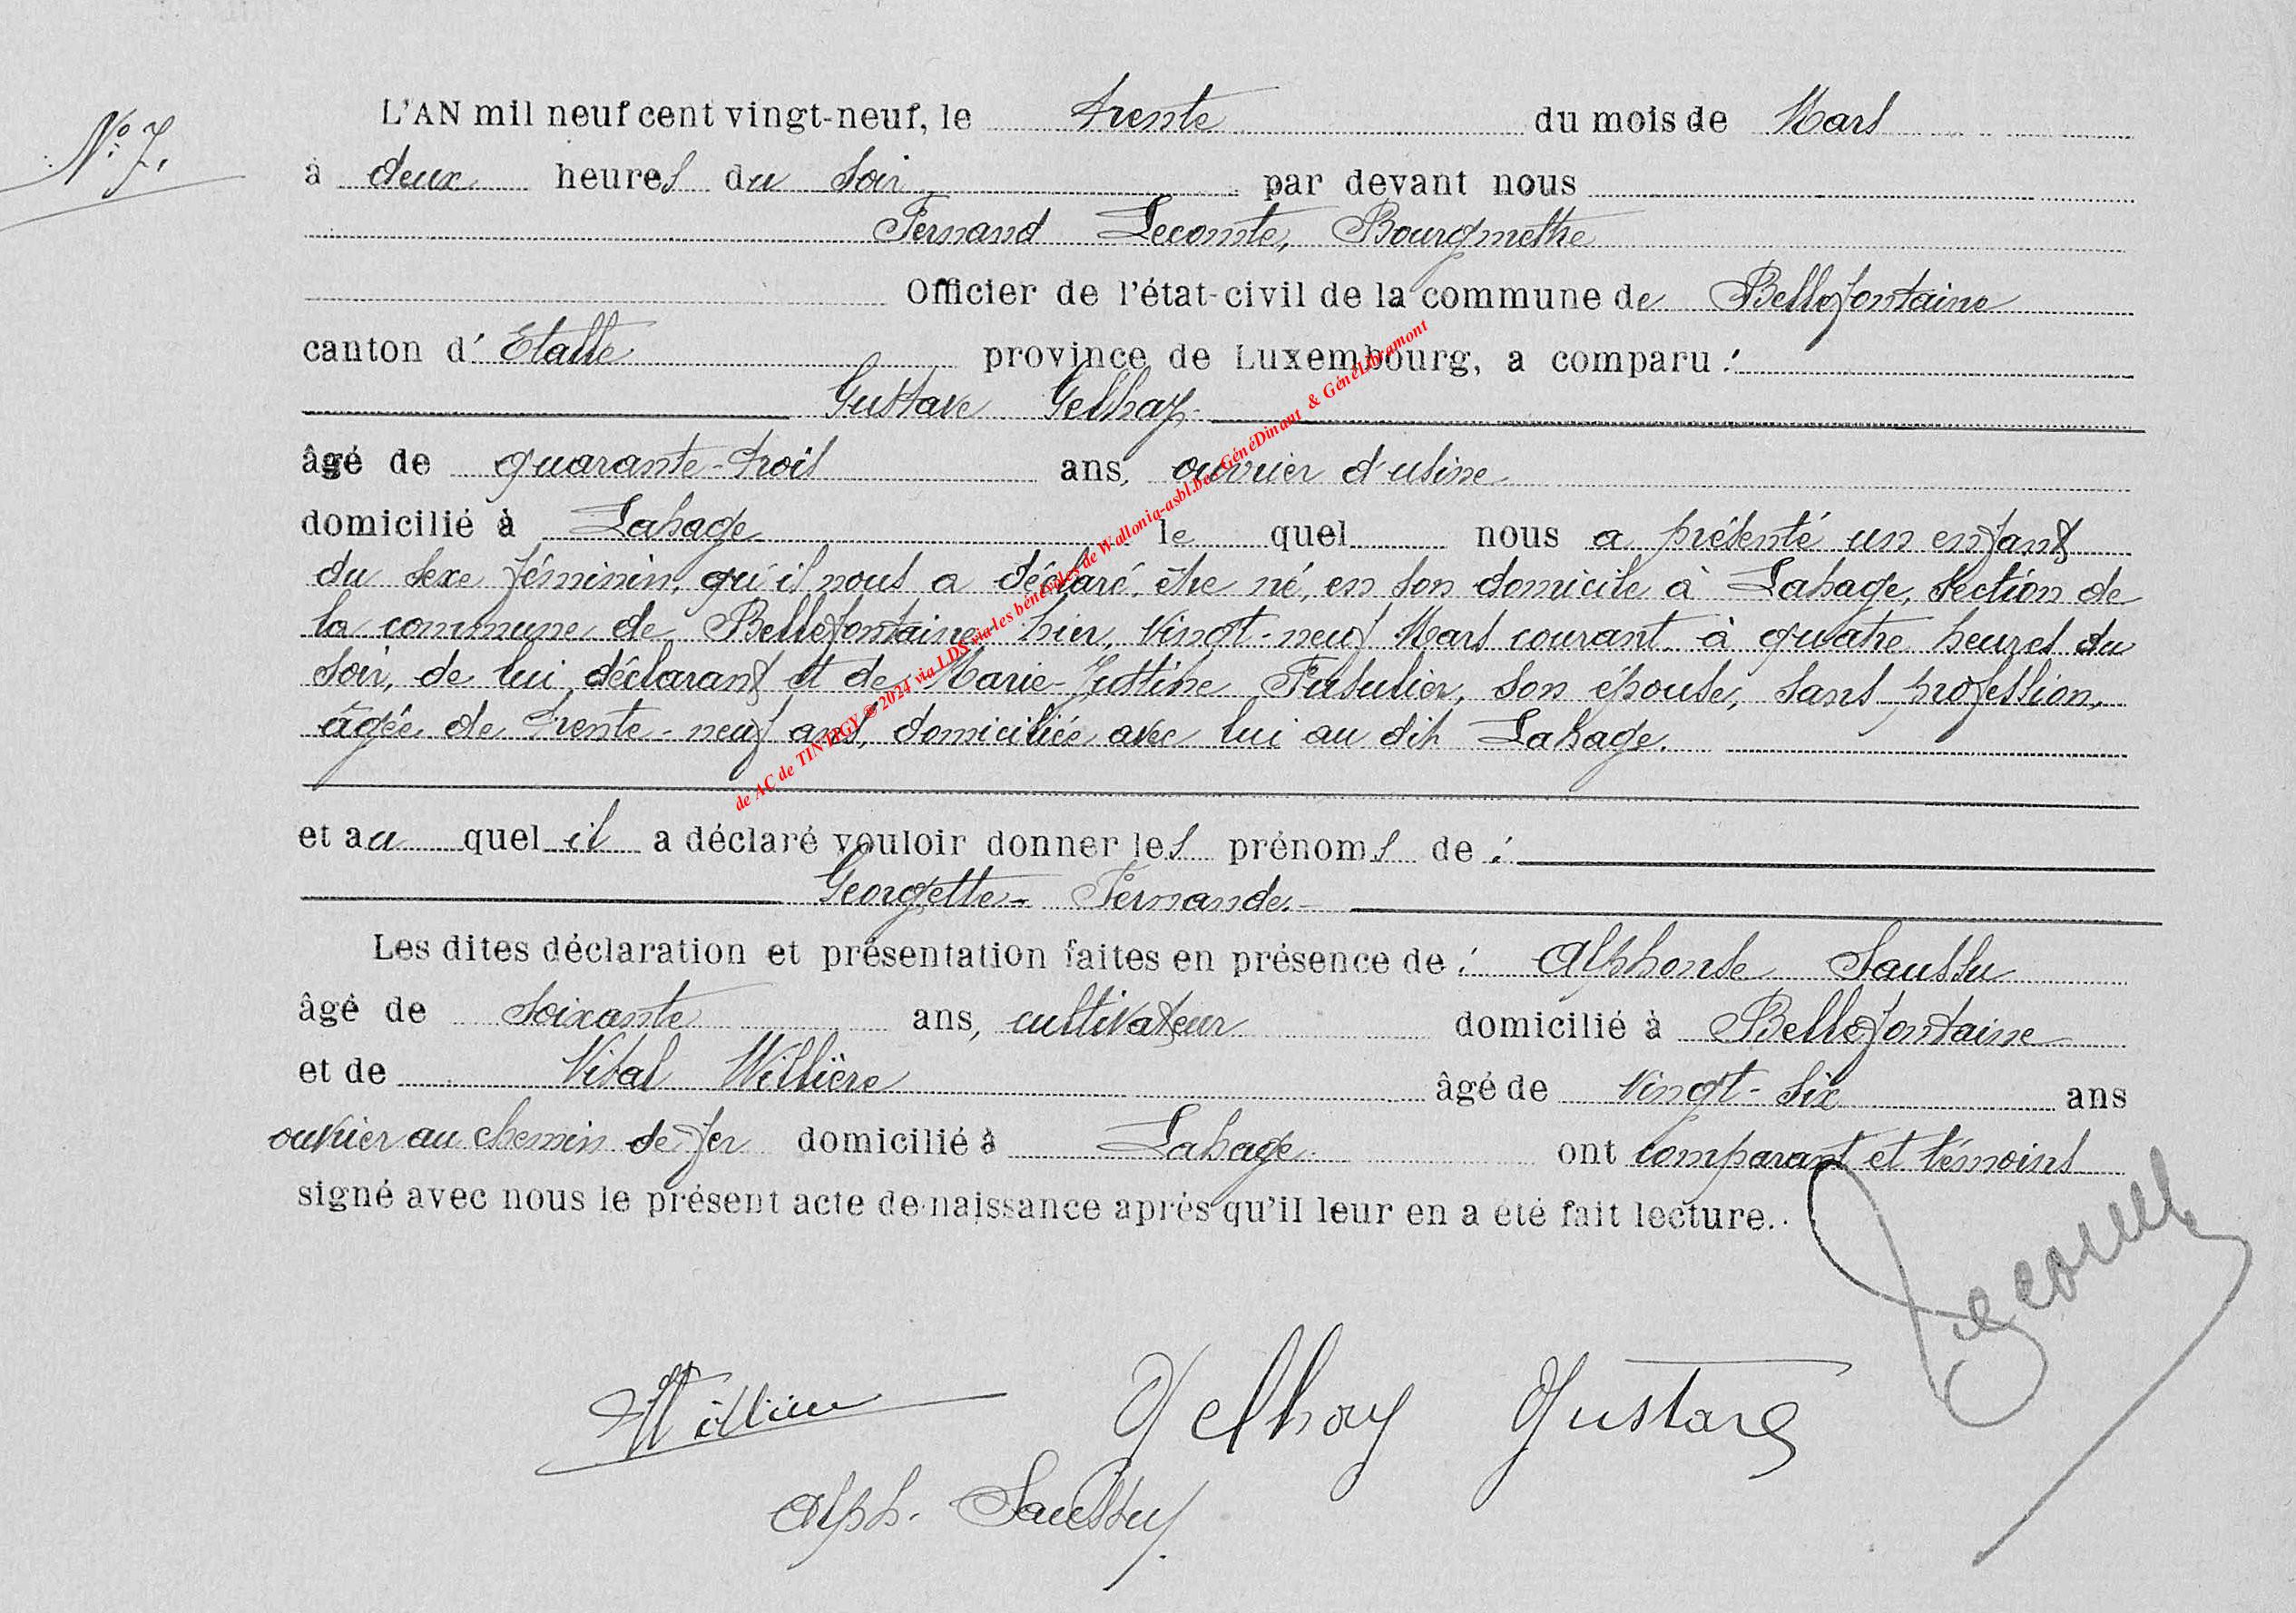 N° 7.
L'AN mil neuf cent vingt-neuf, le trente du mois de Mars
à deux heures du soir par devant nous
Fernand Lecomte, Bourgmestre
Officier de l'état-civil de la commune de Bellefontaine
canton d'Etalle province de Luxembourg, a comparu :
Gustave Gelhay
âgé de quarante-trois ans, ouvrier d'usine
domicilié à Lahage le quel nous a présenté un enfant
du sexe féminin, qu'il nous a déclaré être né, en son domicile à Lahage, section de
la commune de Bellefontaine, hier, vingt-neuf Mars courant à quatre heures du
soir, de lui déclarant et de Marie-Justine Fasulier, son épouse, sans profession,
âgée de trente-neuf ans, domiciliée avec lui au dit Lahage.
et au quel il a déclaré vouloir donner les prénoms de :
Georgette-Fernande.-
Les dites déclaration et présentation faites en présence de : Alphonse Saussu
âgé de soixante ans, cultivateur domicilié à Bellefontaine
et de Vital Willière âgé de vingt-six ans
ouvrier au chemin de fer domicilié à Lahage ont comparant et témoins
signé avec nous le présent acte de naissance après qu'il leur en a été fait lecture.
Lecomte
Willière Gelhay Gustave
Alph. Saussu
de AC de TINTIGY © 2024 via LDS via les bénévoles de Wallonia-asbl.be - GénéDinant & GénéLibramont